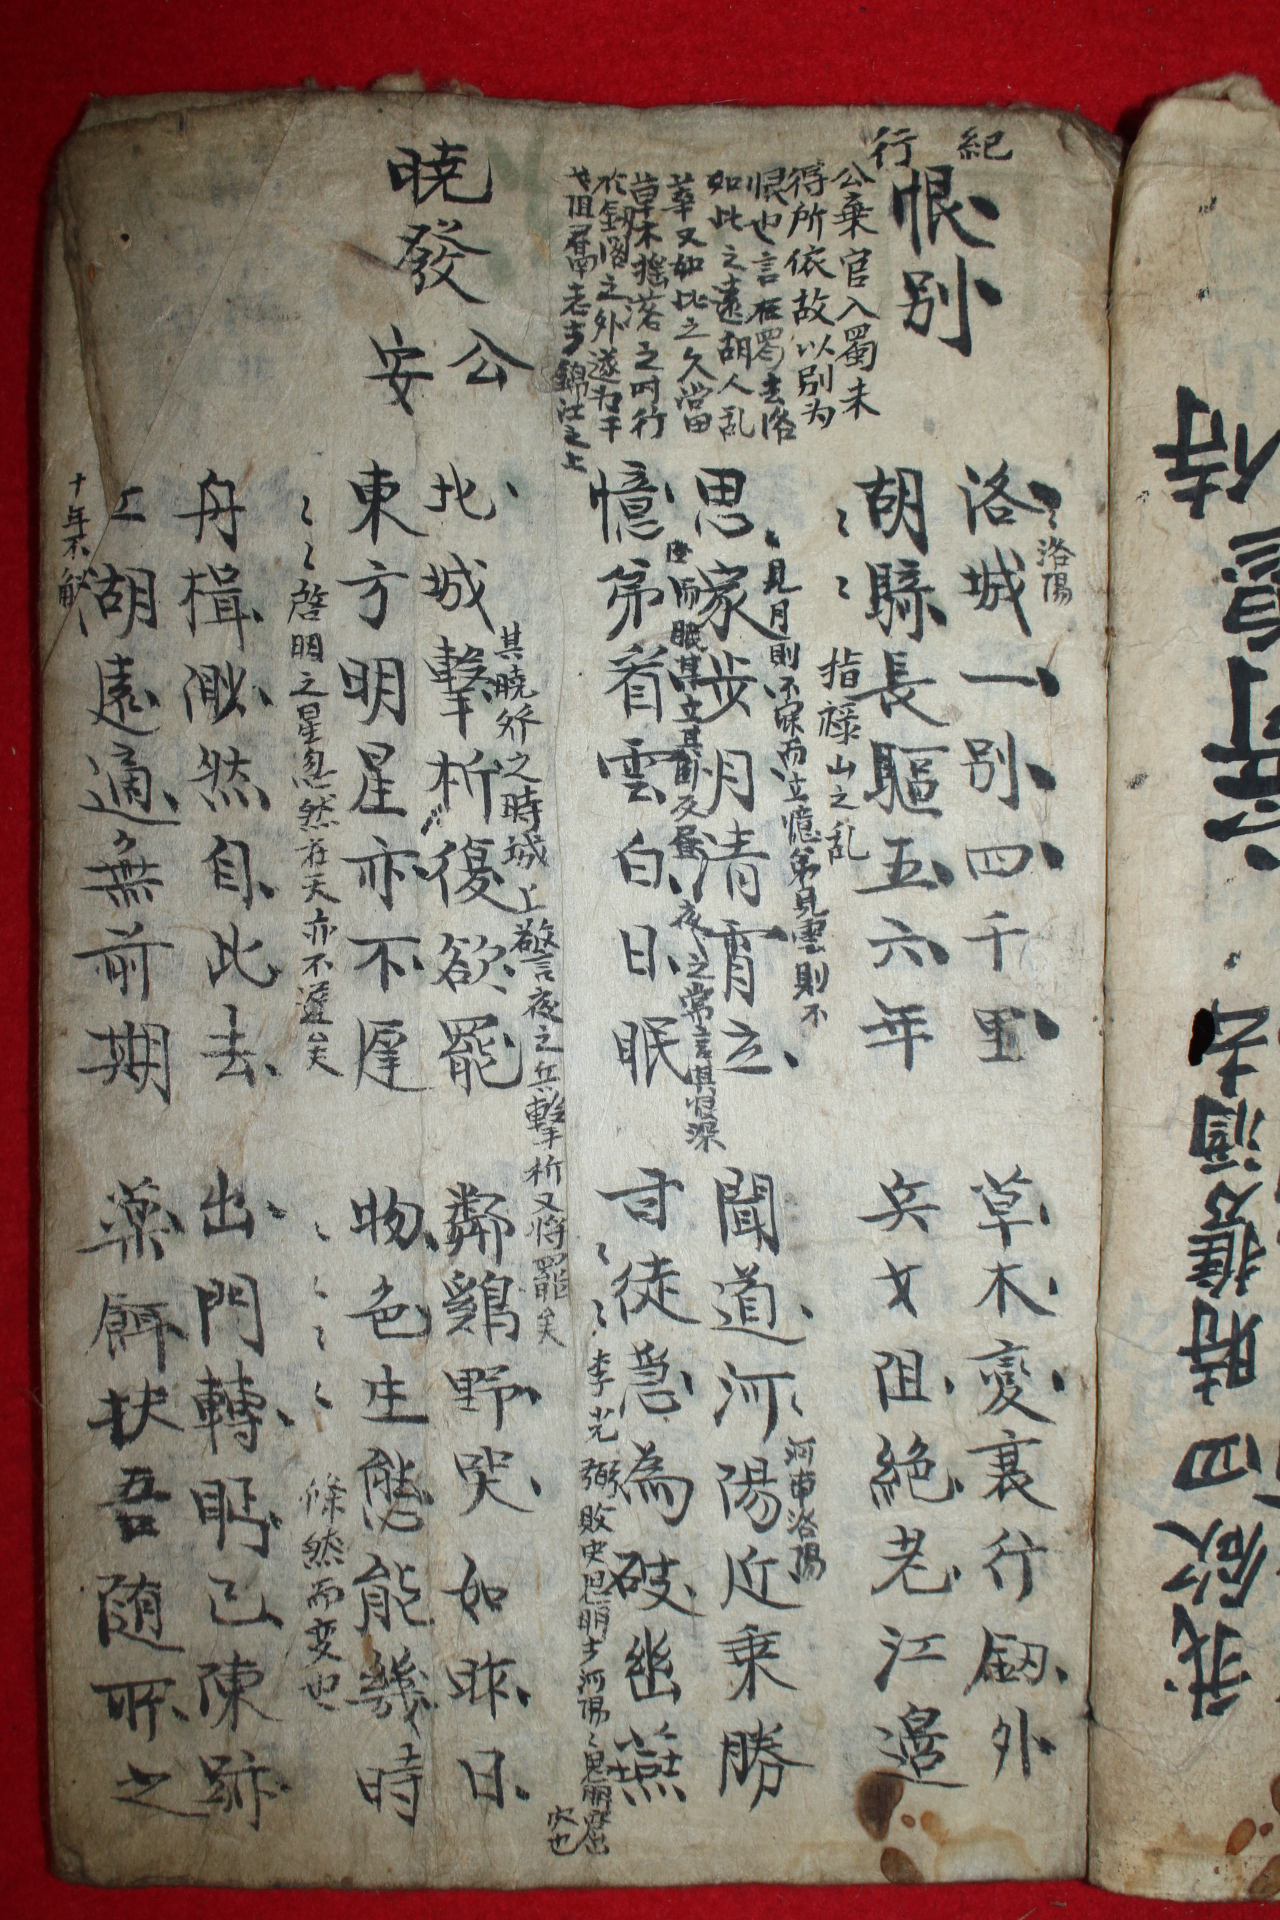 紀行
恨別
公棄官入蜀未
得所依故以別为
恨也言在蜀去洛
如此之遠胡人乱
華又如此之久當
草木搖落之时行
於釼閣之外遂为干
戈阻隔而老於錦江之上
洛城一別四千里
草木變衰行釼外
洛陽
胡騎長驅五六年
兵戈阻絶老江邊
指祿山之乱
思家步月清宵立
聞道河陽近乗勝
見月則不寐而立憶弟見雲則不
河南洛陽
憶弟看雲白日眠
司徒急為破幽燕
李光弼敗史思明於河陽
暁發公安
北城擊柝復欲罷
鄰鷄野哭如昨日
其暁發之時城上警夜之兵擊柝又将罷矣
東方明星亦不遅
物色生態能幾時
啓明之星忽然在天亦不遅矣
倏然而变也
舟楫渺然自此去
出門轉眄已陳跡
江湖遠適無前期
藥餌扶吾随所之
十年不解